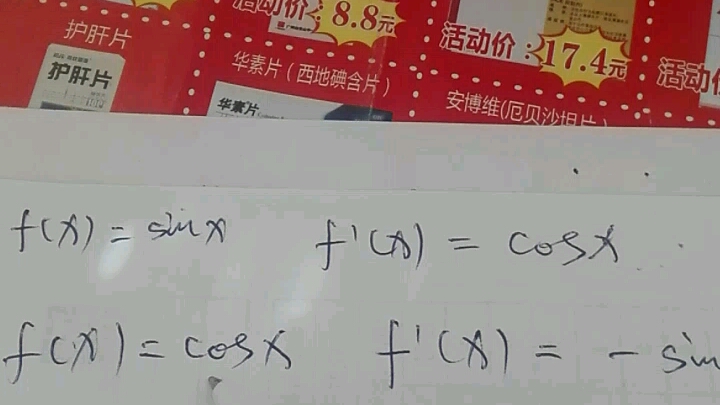 活动价: 8.8元
活动价: 17.4元
护肝片
护肝片
华素片(西地碘含片)
华素片
安博维(厄贝沙坦片)
活动价
f(x) = sinx f'(x) = cosx
f(x) = cosx f'(x) = - sin